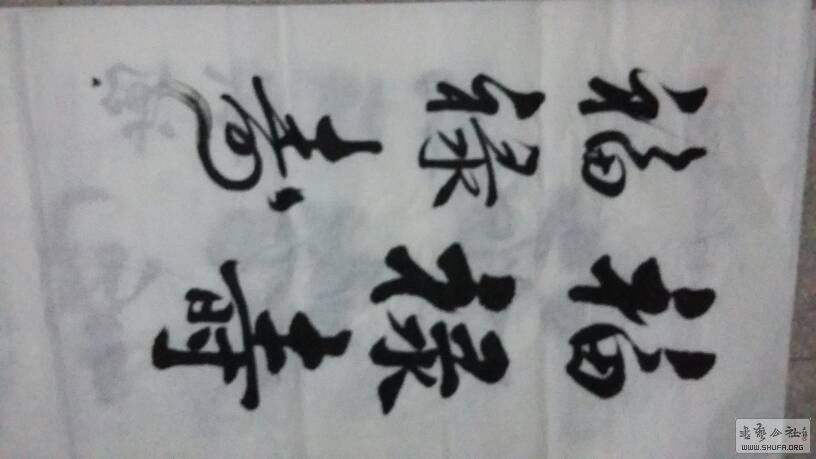 福禄壽
福禄壽
书艺公社
WWW.SHUFA.ORG